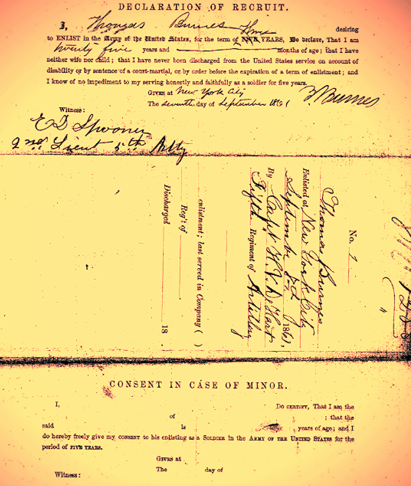 DECLARATION OF RECRUIT.
I, Thomas Burnes desiring
to ENLIST in the Army of the United States, for the term of FIVE YEARS, Do declare, That I am
twenty five years and months of age; that I have
neither wife nor child; that I have never been discharged from the United States service on account of
disability or by sentence of a court-martial, or by order before the expiration of a term of enlistment; and
I know of no impediment to my serving honestly and faithfully as a soldier for five years.
GIVEN AT New York City
The seventh day of September 1861
T Burnes
Witness:
E D Spooner
2nd Lieut 5th Arty
No.
Thomas Burnes
Enlisted at New York City
September 186
By Capt
Fifth Regiment of Artillery
enlistment; last served in Company ( )
Reg't of
Discharged 18
CONSENT IN CASE OF MINOR.
I, Do CERTIFY, That I am the
of ; that the
said is years of age; and I
do hereby freely give my CONSENT to his enlisting as a SOLDIER in the ARMY OF THE UNITED STATES for the
period of FIVE YEARS.
GIVEN at
The day of
Witness: